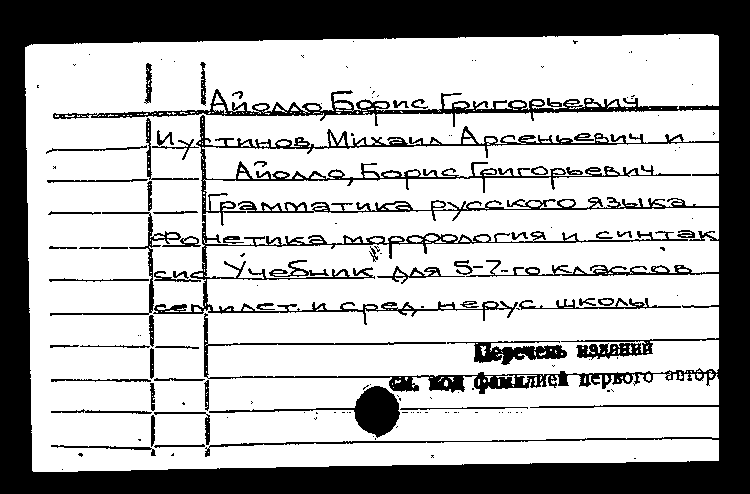 Айолло, Борис Григорьевич
Иустинов, Михаил Арсеньевич и
Айолло, Борис Григорьевич.
Грамматика русского языка.
Фонетика, морфология и синтак
сис. Учебник для 5-7-го классов
семилет. и сред. нерус. школы.
Перечень изданий
см. под фамилией первого автора